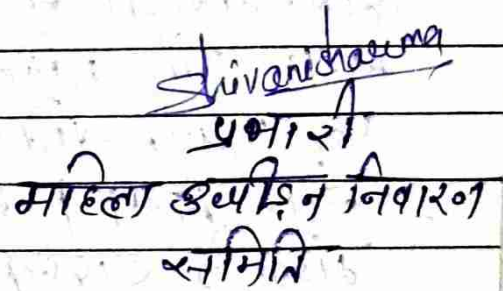 Shivanisharma
प्रभारी
महिला उत्पीड़न निवारण
समिति